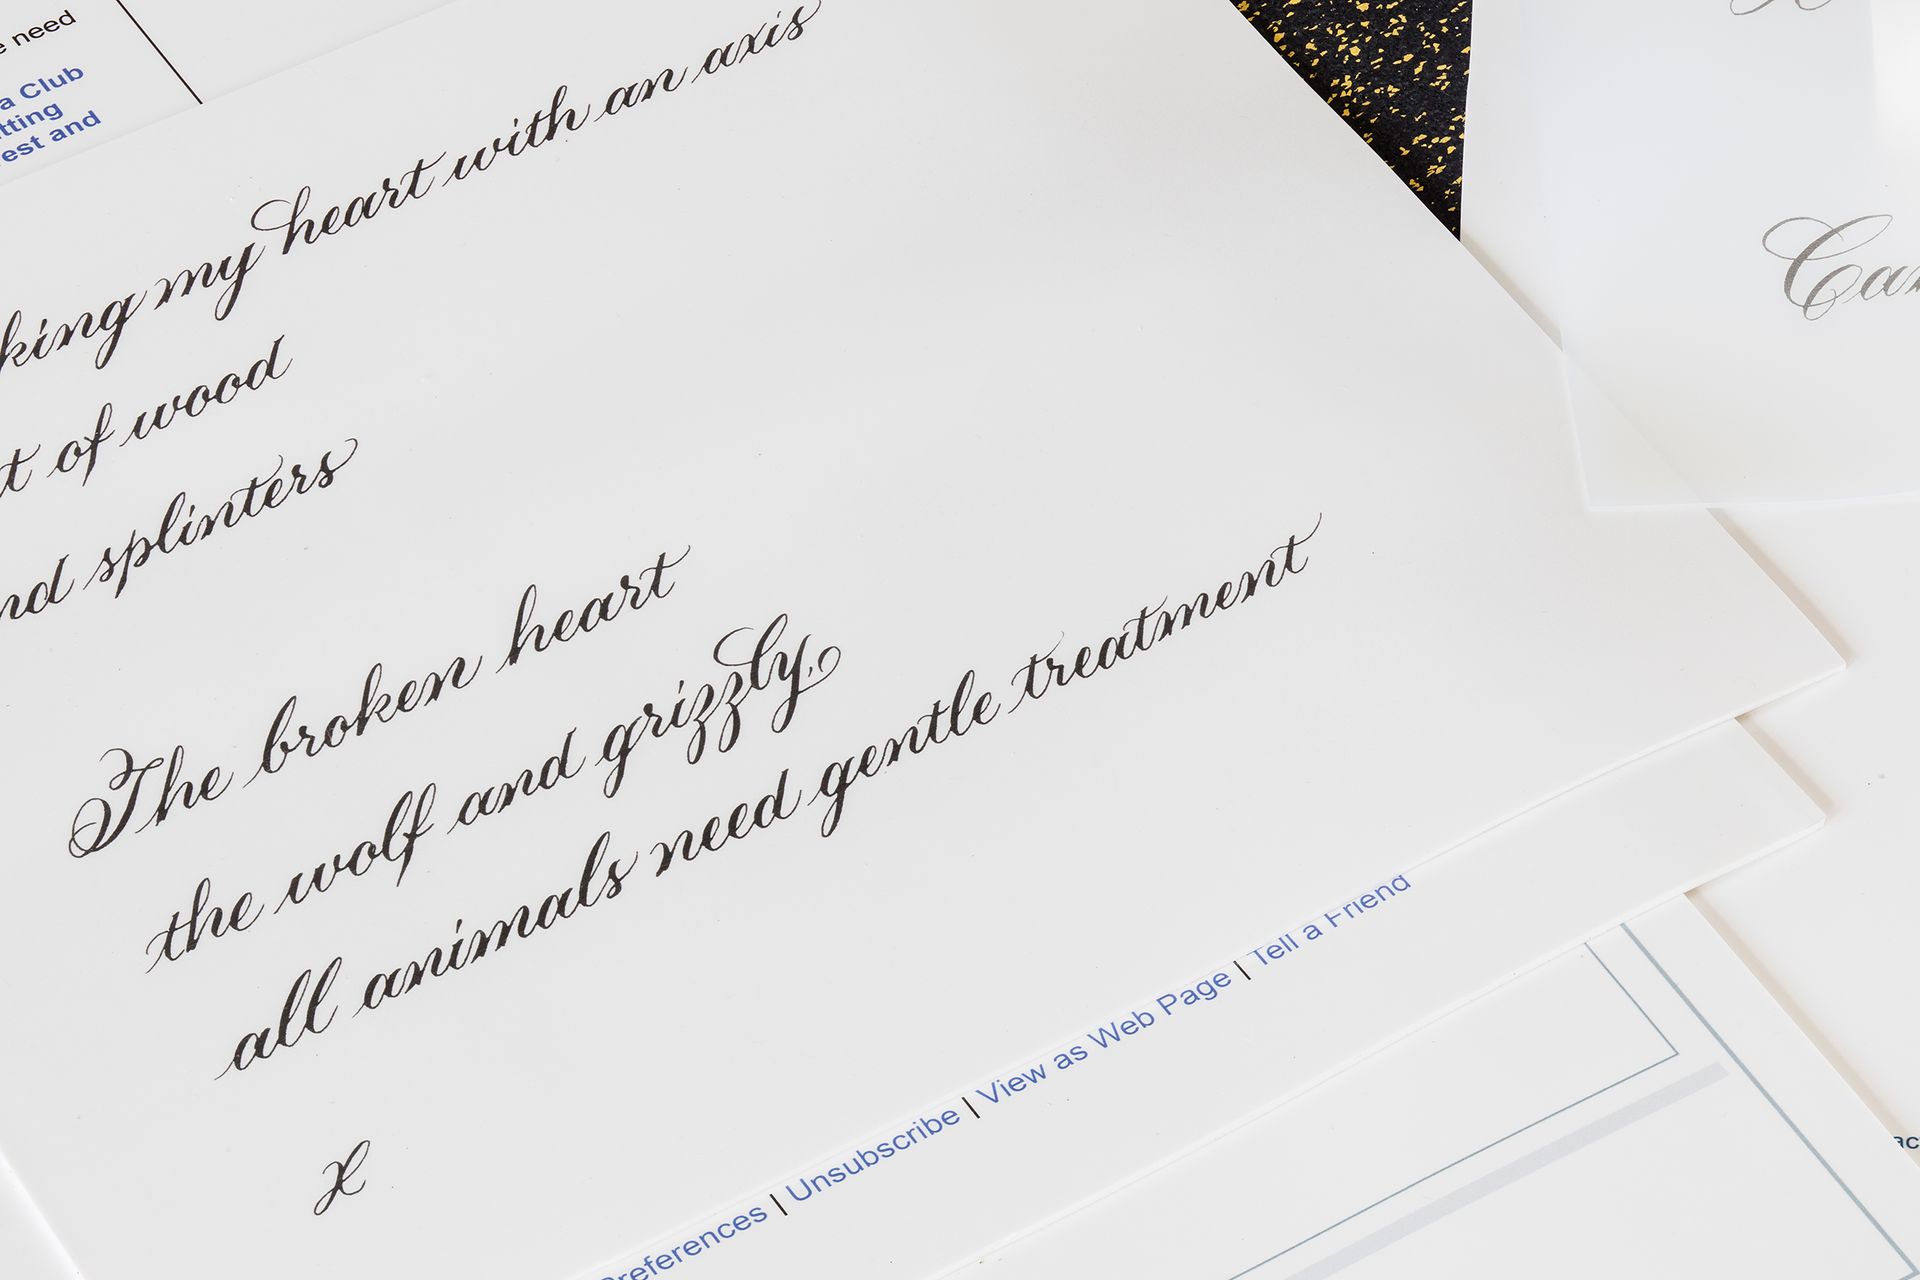 need
a Club
est and
my heart with an axis
of wood
splinters
The broken heart
the wolf and grizzly,
all animals need gentle treatment
x
| Unsubscribe | View as Web Page | Tell a Friend